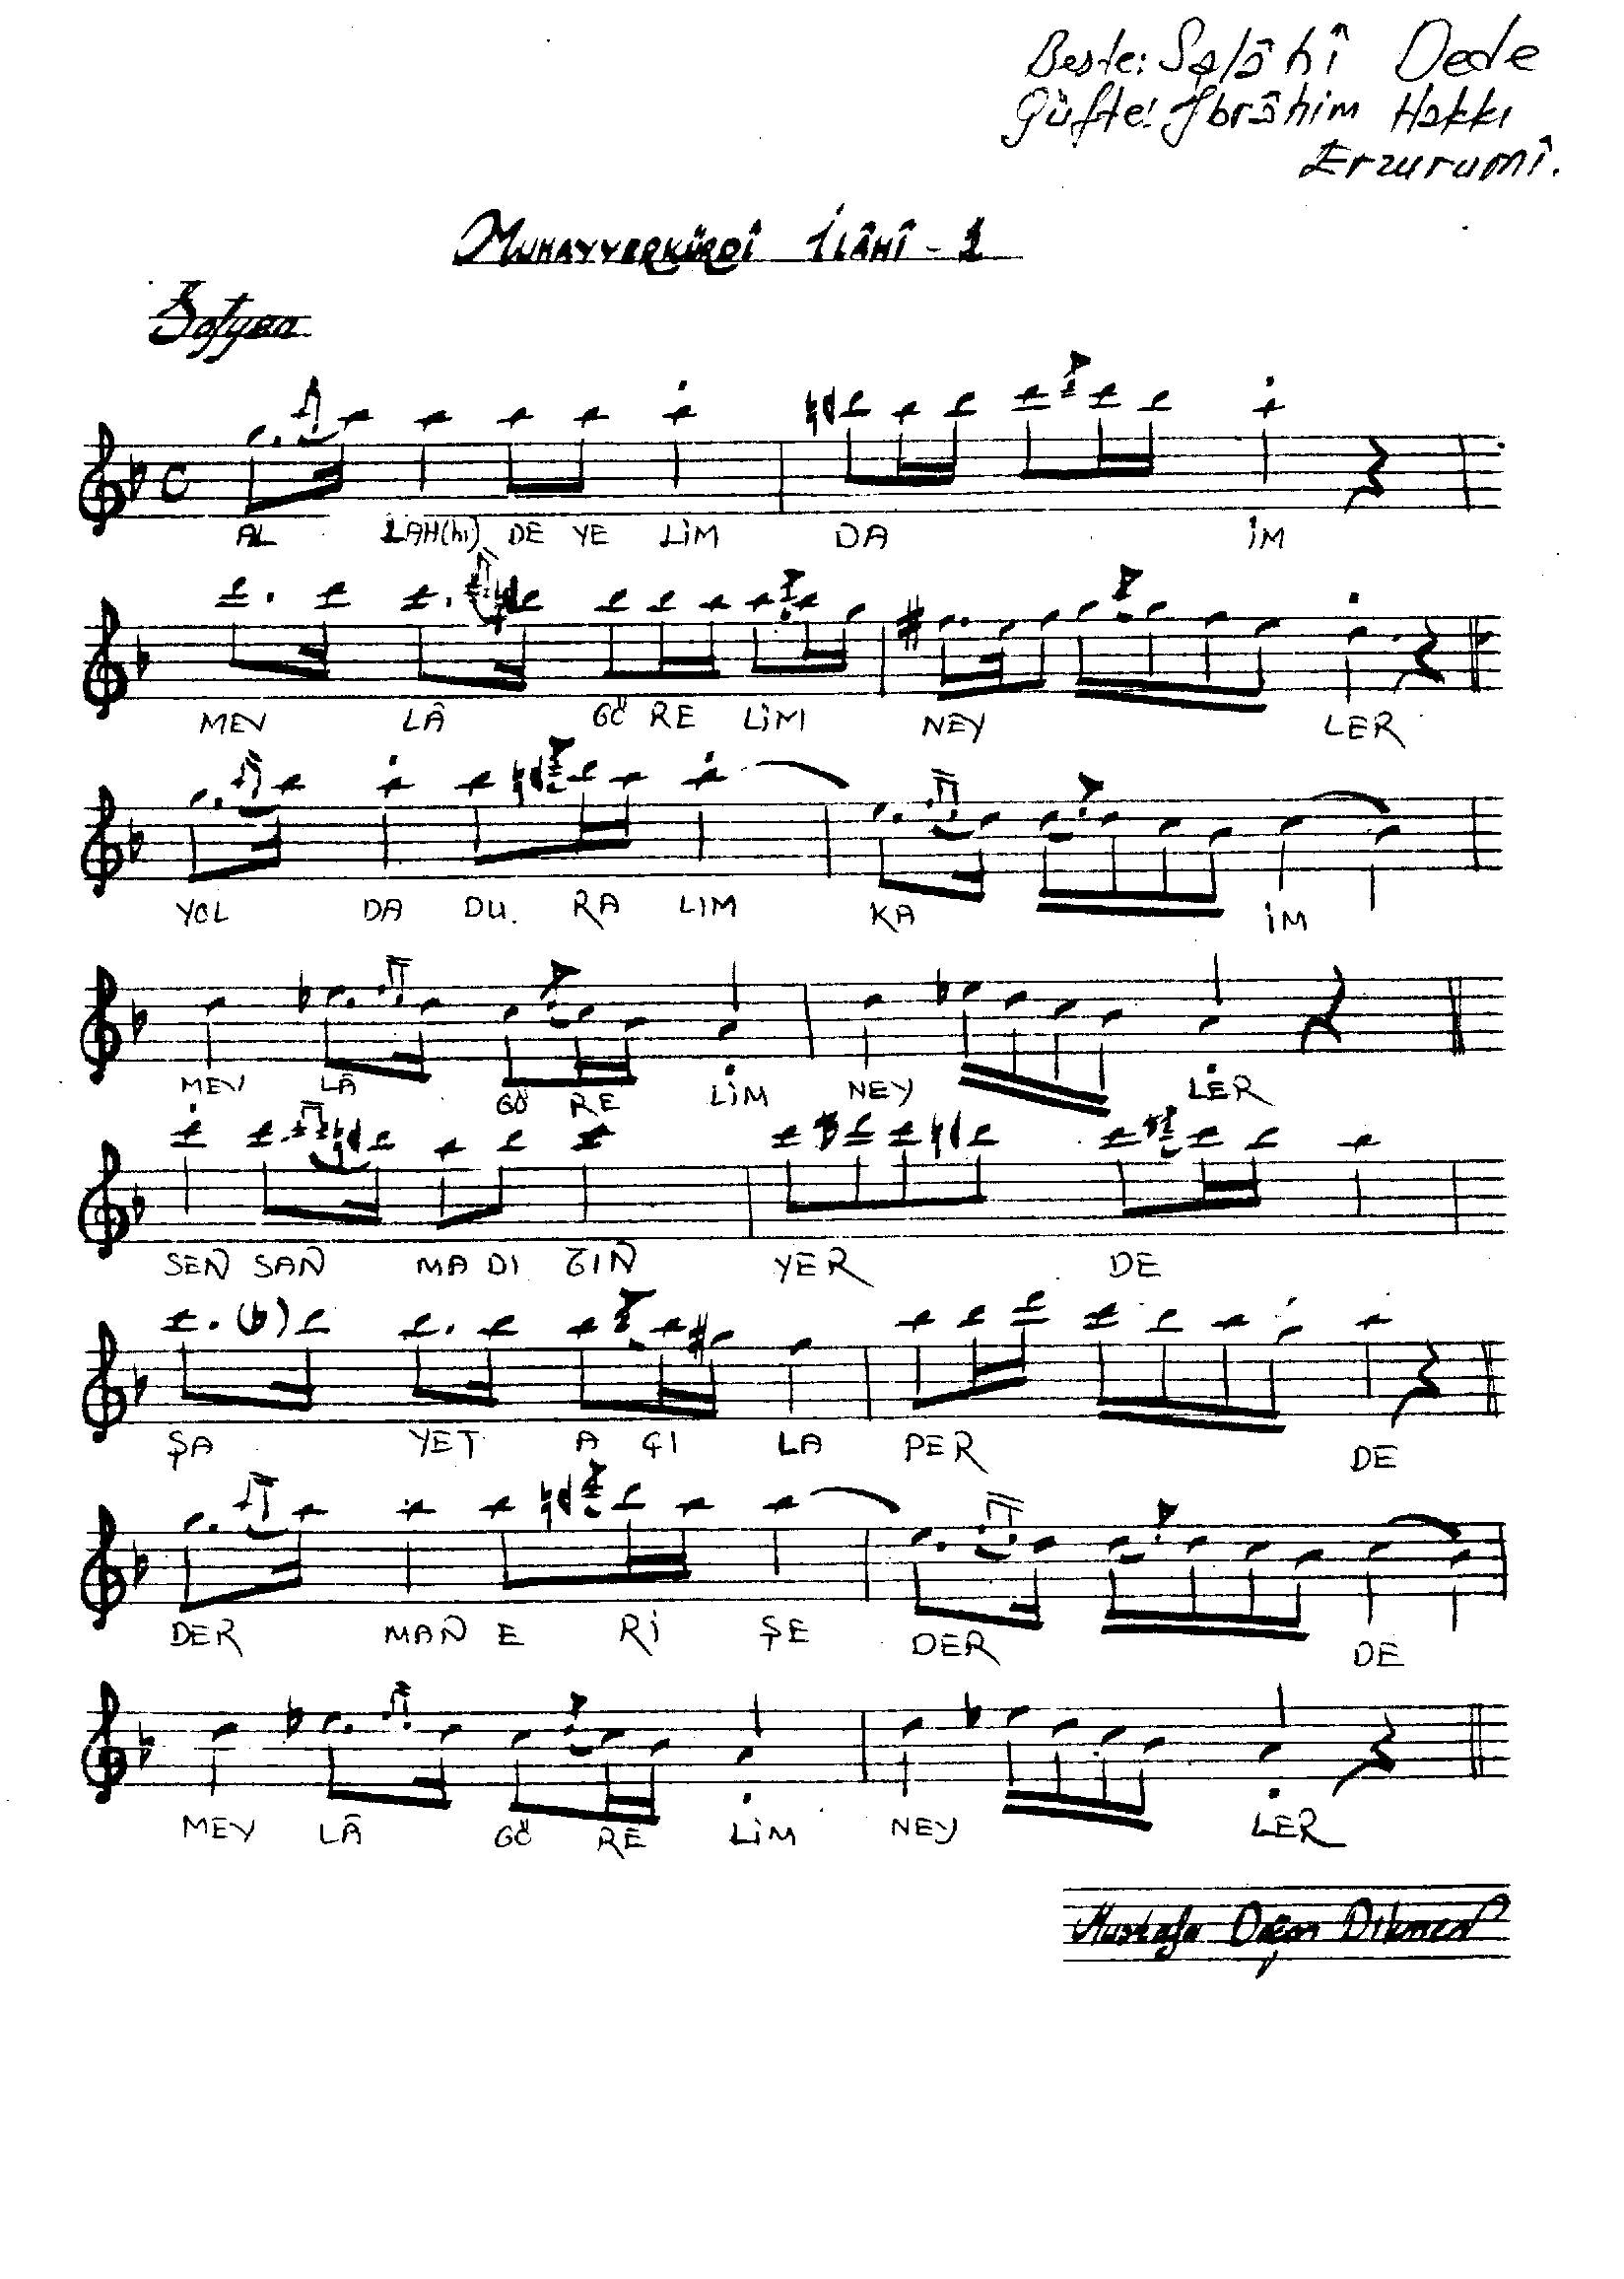 Beste: Salâhî Dede
Güfte: İbrâhim Hakkı
Erzurumî.
MUHAYYERKÜRDÎ İLÂHÎ - 1
Sofyan
AL LAH(hı) DE YE LİM DA İM
MEV LÂ GÖ RE LİM NEY LER
YOL DA DU. RA LIM KA İM
MEV LÂ GÖ RE LİM NEY LER
SEN SAN MA DI ĞIN YER DE
ŞA YET A ÇI LA PER DE
DER MAN E Rİ ŞE DER DE
MEV LÂ GÖ RE LİM NEY LER
Mustafa Doğan Dikmen